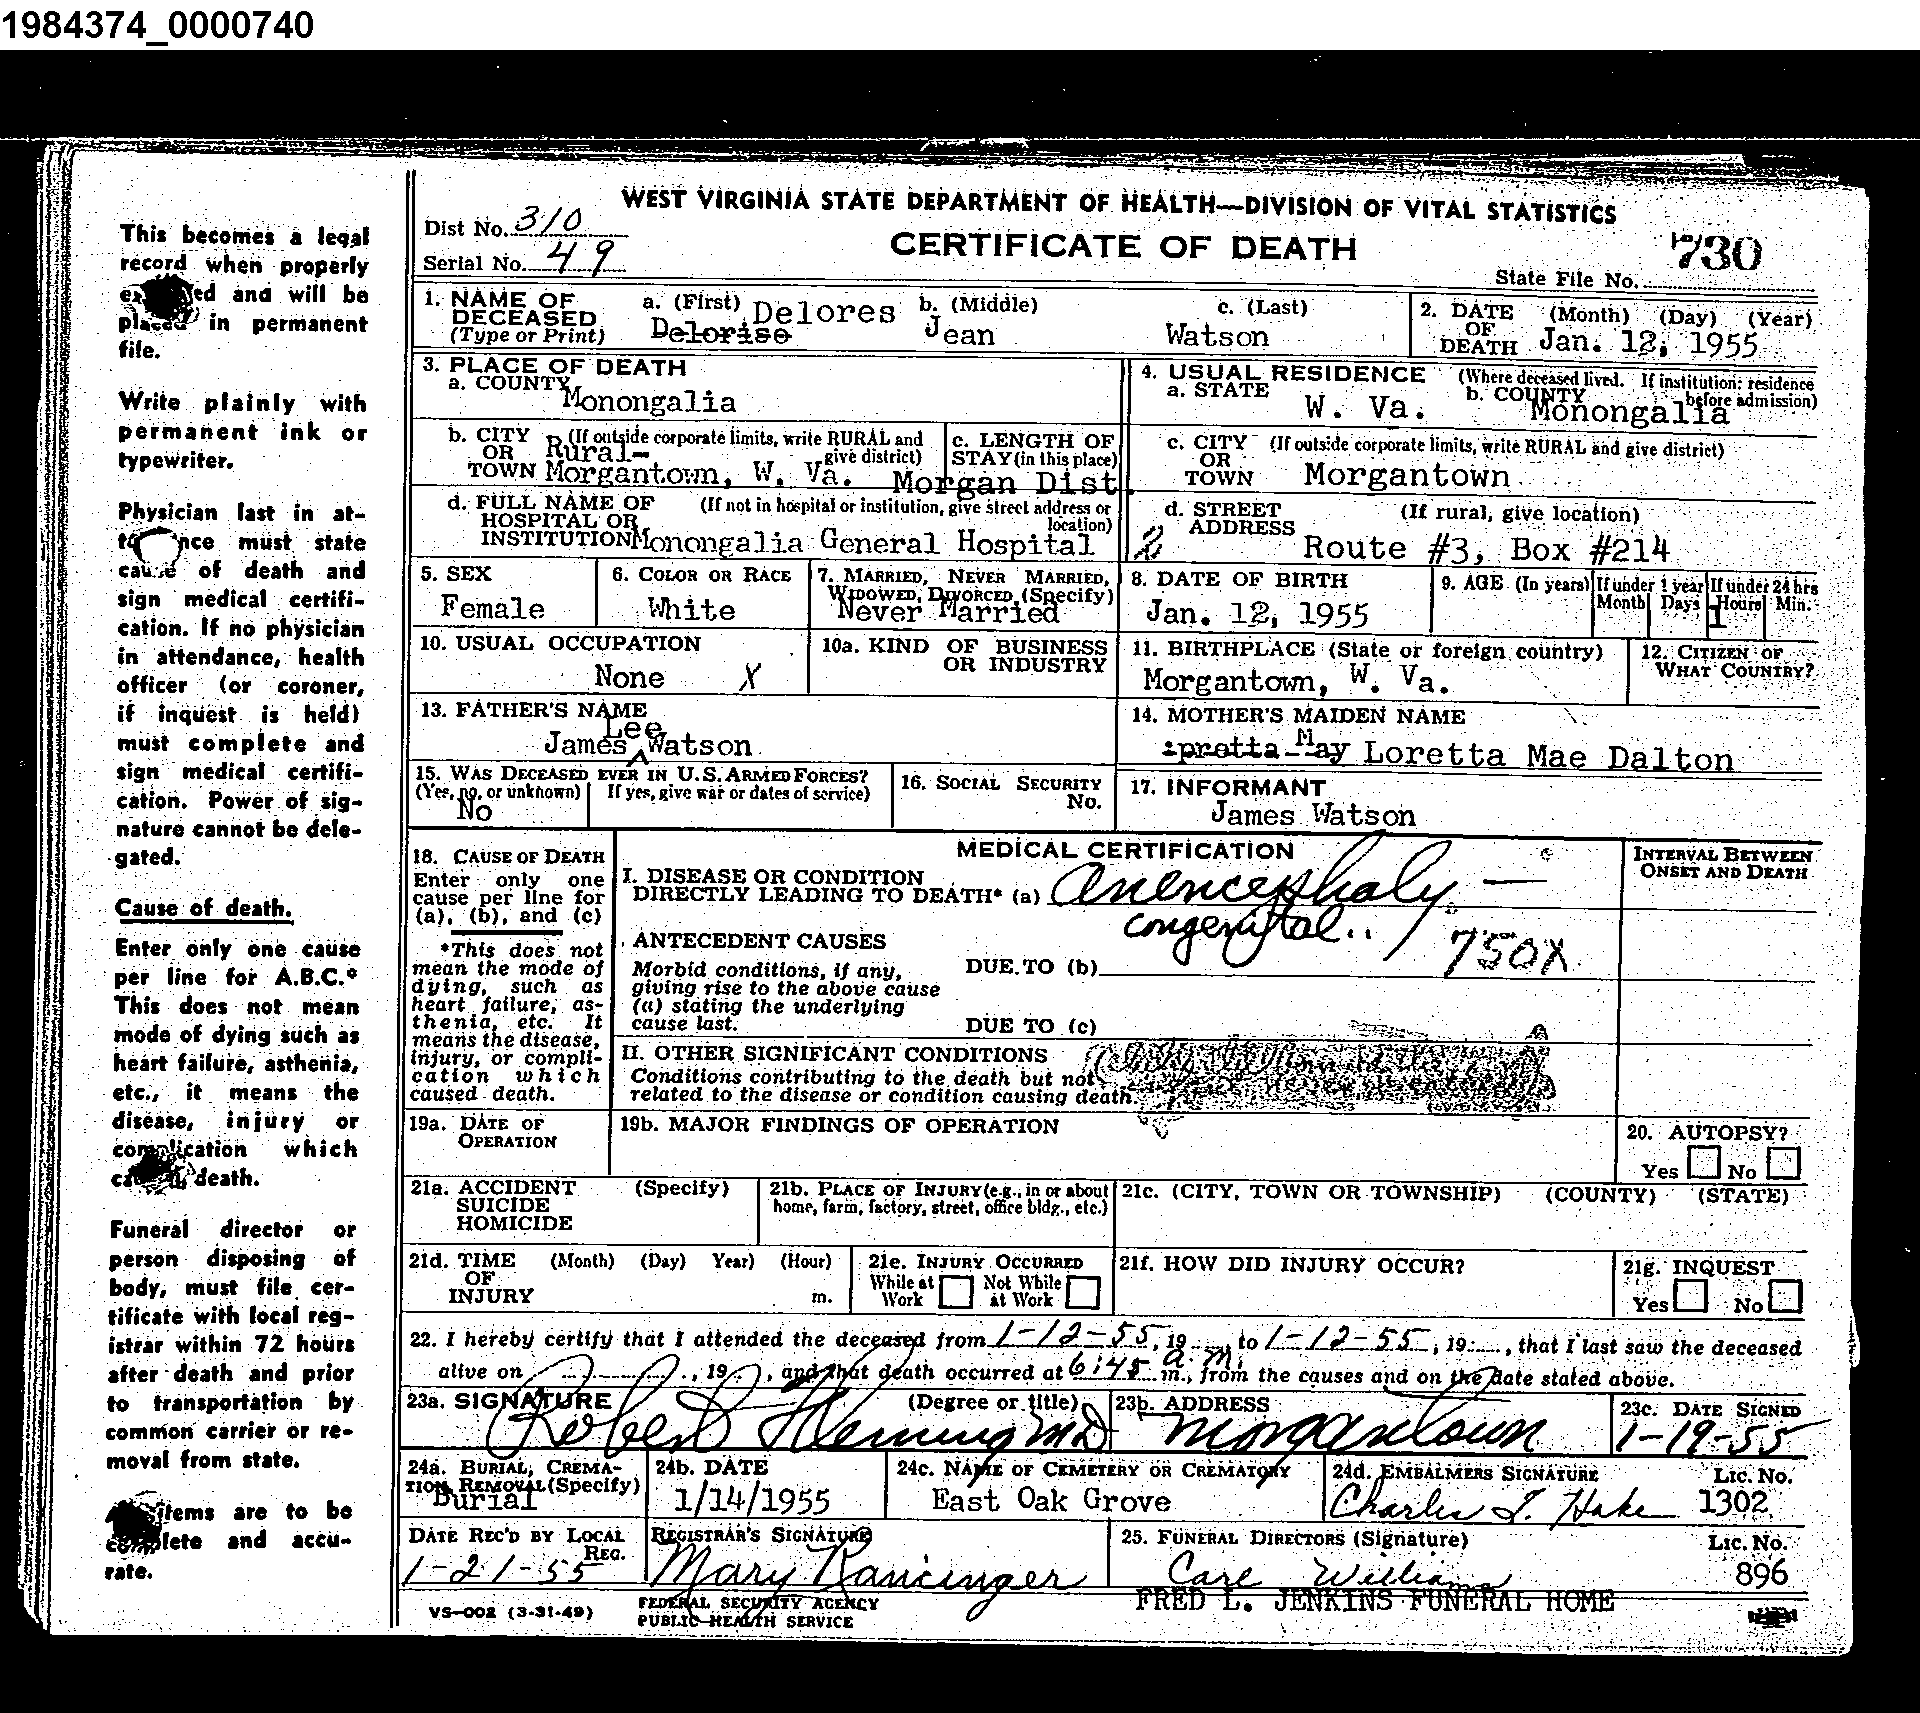 1984374_0000740
WEST VIRGINIA STATE DEPARTMENT OF HEALTH—DIVISION OF VITAL STATISTICS
Dist No. 310
Serial No. 49
CERTIFICATE OF DEATH
730
State File No.
This becomes a legal
record when properly
ed and will be
placed in permanent
file.
Write plainly with
permanent ink or
typewriter.
Physician last in at-
nce must state
cause of death and
sign medical certifi-
cation. If no physician
in attendance, health
officer (or coroner,
if inquest is held)
must complete and
sign medical certifi-
cation. Power of sig-
nature cannot be dele-
gated.
Cause of death.
Enter only one cause
per line for A.B.C.*
This does not mean
mode of dying such as
heart failure, asthenia,
etc., it means the
disease, injury or
complication which
death.
Funeral director or
person disposing of
body, must file cer-
tificate with local reg-
istrar within 72 hours
after death and prior
to transportation by
common carrier or re-
moval from state.
items are to be
complete and accu-
rate.
1. NAME OF DECEASED (Type or Print)
a. (First) Delores
Delorise
b. (Middle) Jean
c. (Last) Watson
2. DATE OF DEATH (Month) (Day) (Year)
Jan. 12, 1955
3. PLACE OF DEATH
a. COUNTY Monongalia
4. USUAL RESIDENCE (Where deceased lived. If institution: residence before admission)
a. STATE W. Va.
b. COUNTY Monongalia
b. CITY OR TOWN (If outside corporate limits, write RURAL and give district)
Rural-
Morgantown, W. Va. Morgan Dist.
c. LENGTH OF STAY (in this place)
c. CITY OR TOWN (If outside corporate limits, write RURAL and give district)
Morgantown
d. FULL NAME OF HOSPITAL OR INSTITUTION (If not in hospital or institution, give street address or location)
Monongalia General Hospital
d. STREET ADDRESS (If rural, give location)
2 Route #3, Box #214
5. SEX
Female
6. COLOR OR RACE
White
7. MARRIED, NEVER MARRIED, WIDOWED, DIVORCED (Specify)
Never Married
8. DATE OF BIRTH
Jan. 12, 1955
9. AGE (In years) If under 1 year If under 24 hrs
Month Days Hours Min.
1
10. USUAL OCCUPATION
None X
10a. KIND OF BUSINESS OR INDUSTRY
11. BIRTHPLACE (State or foreign country)
Morgantown, W. Va.
12. CITIZEN OF WHAT COUNTRY?
13. FATHER'S NAME
Lee
James Watson
14. MOTHER'S MAIDEN NAME
May Loretta Mae Dalton
15. WAS DECEASED EVER IN U.S. ARMED FORCES?
(Yes, no, or unknown) If yes, give war or dates of service)
No
16. SOCIAL SECURITY No.
17. INFORMANT
James Watson
MEDICAL CERTIFICATION
INTERVAL BETWEEN ONSET AND DEATH
18. CAUSE OF DEATH
Enter only one
cause per line for
(a), (b), and (c)
*This does not
mean the mode of
dying, such as
heart failure, as-
thenia, etc. It
means the disease,
injury, or compli-
cation which
caused death.
I. DISEASE OR CONDITION
DIRECTLY LEADING TO DEATH* (a) Anencephaly —
congenital
750X
ANTECEDENT CAUSES
Morbid conditions, if any,
giving rise to the above cause
(a) stating the underlying
cause last.
DUE TO (b)
DUE TO (c)
II. OTHER SIGNIFICANT CONDITIONS
Conditions contributing to the death but not
related to the disease or condition causing death.
19a. DATE OF OPERATION
19b. MAJOR FINDINGS OF OPERATION
20. AUTOPSY?
Yes No
21a. ACCIDENT SUICIDE HOMICIDE (Specify)
21b. PLACE OF INJURY (e.g., in or about home, farm, factory, street, office bldg., etc.)
21c. (CITY, TOWN OR TOWNSHIP) (COUNTY) (STATE)
21d. TIME OF INJURY (Month) (Day) Year) (Hour) m.
21e. INJURY OCCURRED
While at Work Not While at Work
21f. HOW DID INJURY OCCUR?
21g. INQUEST
Yes No
22. I hereby certify that I attended the deceased from 1-12-55, 19 , to 1-12-55, 19 , that I last saw the deceased
alive on , 19 , and that death occurred at 6:45 a.m. m., from the causes and on the date stated above.
23a. SIGNATURE (Degree or title)
Robert Fleming MD
23b. ADDRESS
Morgantown
23c. DATE SIGNED
1-19-55
24a. BURIAL, CREMATION REMOVAL (Specify)
Burial
24b. DATE
1/14/1955
24c. NAME OF CEMETERY OR CREMATORY
East Oak Grove
24d. EMBALMERS SIGNATURE Lic. No.
Charles I. Hake 1302
DATE REC'D BY LOCAL REG.
1-21-55
REGISTRAR'S SIGNATURE
Mary
25. FUNERAL DIRECTORS (Signature) Lic. No.
Carl Williams 896
FRED L. JENKINS FUNERAL HOME
VS-002 (3-31-49)
FEDERAL SECURITY AGENCY
PUBLIC HEALTH SERVICE